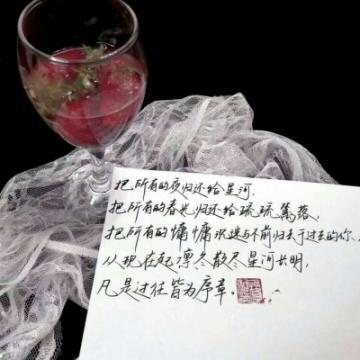 把所有的夜归还给星河，
把所有的春光归还给琉琉篱落，
把所有的慵慵沉迷与不前归于过去的你、
从现在起，凛冬散尽星河长明，
凡是过往皆为序章。